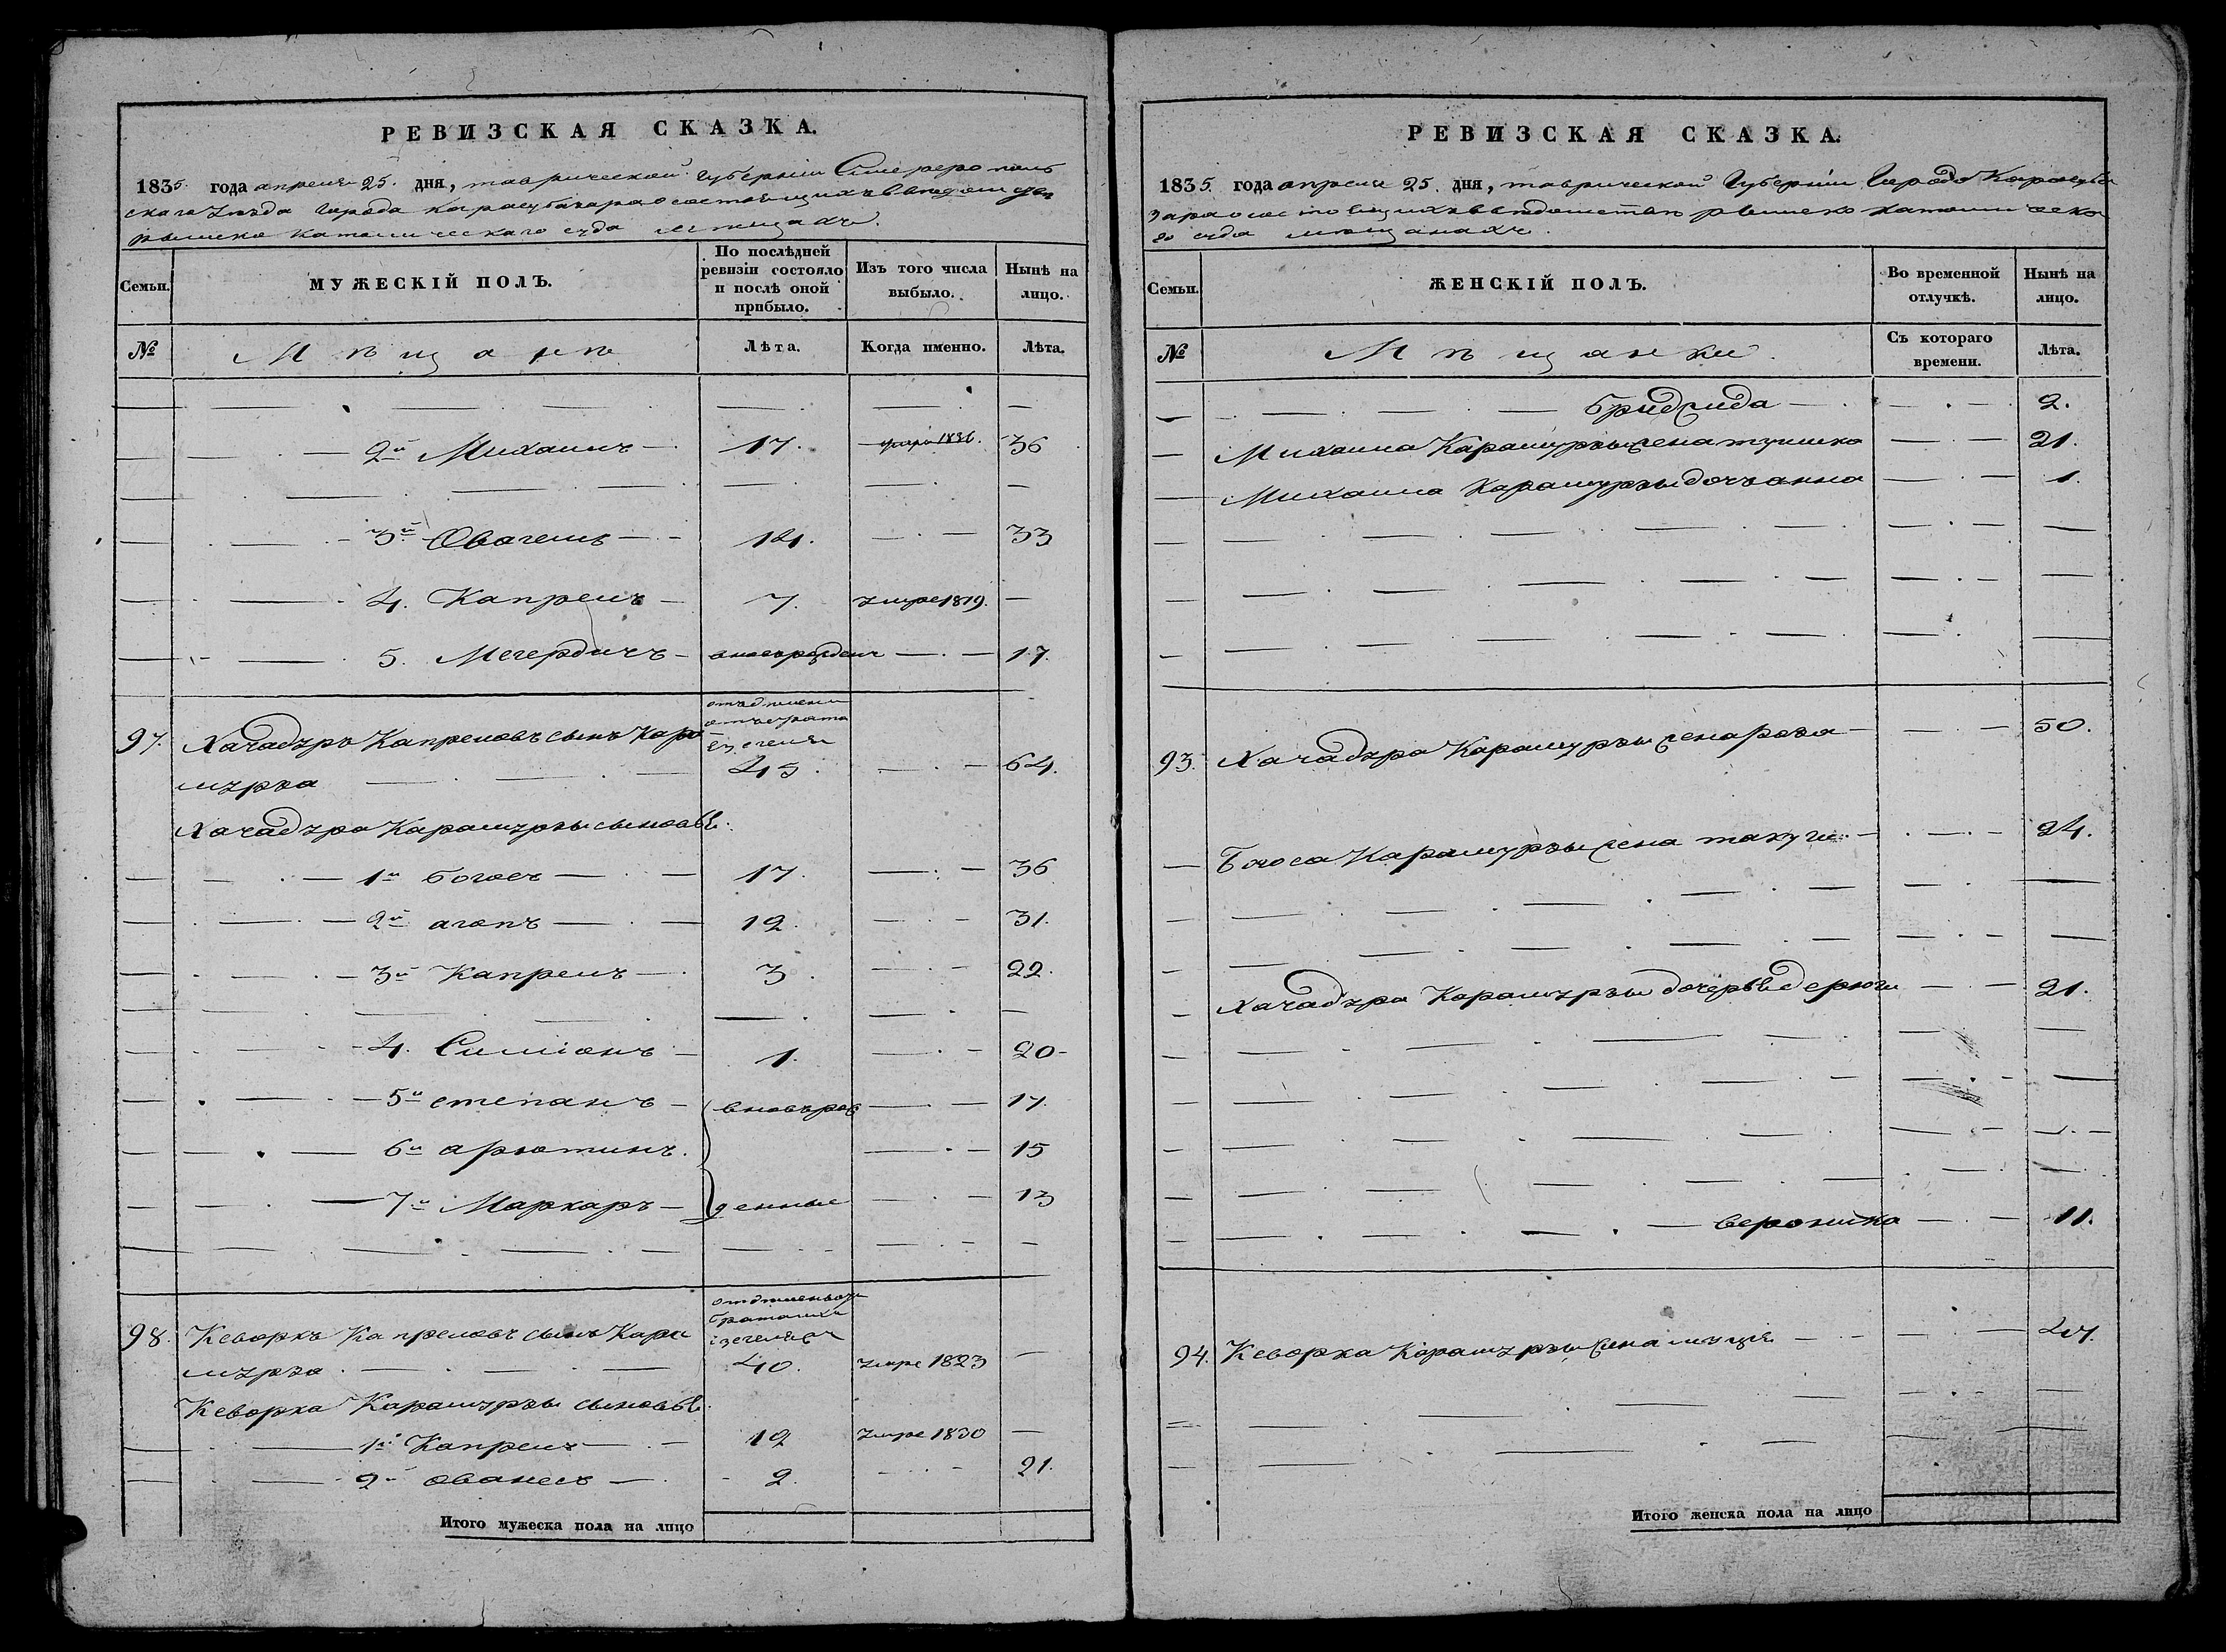 РЕВИЗСКАЯ СКАЗКА.
1835. года апреля 25. дня, таврической губернии Симферополь
скаго уезда города карасубазара о состоящихъ в ведомстве
римско католическаго суда мещанахъ.
Семьи. МУЖЕСКІЙ ПОЛЪ. По послѣдней ревизіи состояло и послѣ оной прибыло. Изъ того числа выбыло. Нынѣ на лицо.
№ Мѣщане Лѣта. Когда именно. Лѣта.
2й Михаилъ 17. 1836. 36
3й Овагемъ 14. 33
4. Капрелъ 7. умре 1819. —
5. Мегердичъ вновьрожденъ 17.
97. Хачадуръ Капреловъ сынъ Кара
мурза 45. 64.
Хачадура Карамурзы сыновья:
1й Богосъ 17. 36
2й агопъ 12. 31.
3й Капрелъ 3. 22.
4. Симіонъ 1. 20
5й степанъ вновьрож 17.
6й арютинъ. 15
7й Маркаръ денные 13
98. Кеворкъ Капреловъ сынъ Кара
мурза 40. умре 1823 —
Кеворка Карамурзы сыновья
1й Капрелъ 19 умре 1830 —
2й ованесъ 2. 21.
Итого мужеска пола на лицо
РЕВИЗСКАЯ СКАЗКА.
1835. года апреля 25. дня, таврической Губерніи Города Карасуба
зара о состоящихъ в ведомстве римско католическа
го суда мещанахъ.
Семьи. ЖЕНСКІЙ ПОЛЪ. Во временной отлучкѣ. Нынѣ на лицо.
№ Мѣщанки. Съ котораго времени. Лѣта.
2.
Михаила Карамурзы жена 21.
Михаила Карамурзы дочь анна 1.
93. Хачадура Карамурзы жена роза 50.
Богоса Карамурзы жена такуги 24.
Хачадура Карамурзы дочери 21.
вероника 11.
94. Кеворка Карамурзы жена 47.
Итого женска пола на лицо